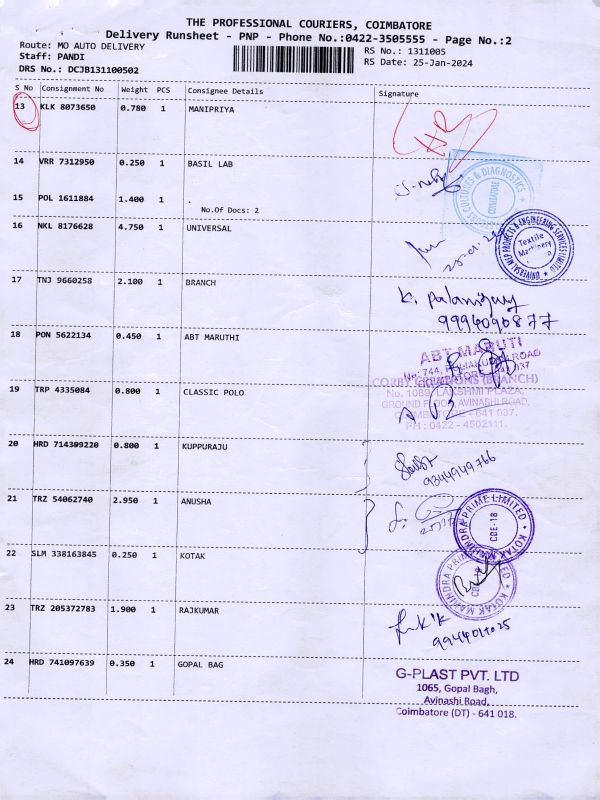 THE PROFESSIONAL COURIERS, COIMBATORE
Delivery Runsheet - PNP - Phone No.:0422-3505555 - Page No.:2
Route: MO AUTO DELIVERY
RS No.: 1311005
Staff: PANDI
RS Date: 25-Jan-2024
DRS No.: DCJB131100502
S No Consignment No Weight PCS Consignee Details Signature
13 KLK 8073650 0.780 1 MANIPRIYA
14 VRR 7312950 0.250 1 BASIL LAB
& DIAGNOSTICS
COIMBATORE
15 POL 1611884 1.400 1 .
No.Of Docs: 2
16 NKL 8176628 4.750 1 UNIVERSAL
UNIVERSAL MEP PROJECTS & ENGINEERING SERVICES LIMITED
Textile
Machinery
17 TNJ 9660258 2.100 1 BRANCH
18 PON 5622134 0.450 1 ABT MARUTHI
ABT MARUTI
19 TRP 4335084 0.800 1 CLASSIC POLO
No. 1089, LAKSHMI PLAZA,
GROUND FLOOR, AVINASHI ROAD,
COIMBATORE - 641 037.
PH : 0422 - 4502111.
20 HRD 714399220 0.800 1 KUPPURAJU
9344949766
21 TRZ 54062740 2.950 1 ANUSHA
KOTAK MAHINDRA PRIME LIMITED
CBE-18
22 SLM 338163845 0.250 1 KOTAK
KOTAK MAHINDRA PRIME LIMITED
23 TRZ 205372783 1.900 1 RAJKUMAR
24 HRD 741097639 0.350 1 GOPAL BAG
G-PLAST PVT. LTD
1065, Gopal Bagh,
Avinashi Road,
Coimbatore (DT) - 641 018.